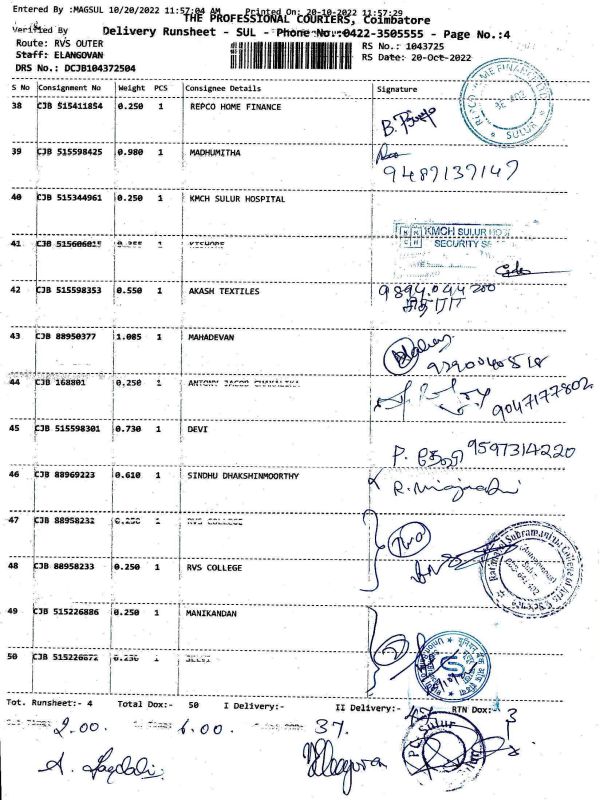 Entered By :MAGSUL 10/20/2022 11:57:04 AM Printed On: 20-10-2022 11:57:29
THE PROFESSIONAL COURIERS, Coimbatore
Verified By
Delivery Runsheet - SUL - Phone No.:0422-3505555 - Page No.:4
Route: RVS OUTER
RS No.: 1043725
Staff: ELANGOVAN
RS Date: 20-Oct-2022
DRS No.: DCJB104372504
S No Consignment No Weight PCS Consignee Details Signature
38 CJB 515411854 0.250 1 REPCO HOME FINANCE
REPCO HOME FINANCE
SULUR
39 CJB 515598425 0.980 1 MADHUMITHA
9489139147
40 CJB 515344961 0.250 1 KMCH SULUR HOSPITAL
KMCH SULUR
SECURITY
41 CJB 515606015 1 KISHORE
42 CJB 515598353 0.550 1 AKASH TEXTILES
9894044200
43 CJB 88950377 1.085 1 MAHADEVAN
44 CJB 168801 0.250 1 ANTONY JACOB
9047177802
45 CJB 515598301 0.730 1 DEVI
P. தேவி 9597314220
46 CJB 88969223 0.610 1 SINDHU DHAKSHINMOORTHY
47 CJB 88958232 0.250 1 RVS COLLEGE
Two
48 CJB 88958233 0.250 1 RVS COLLEGE
49 CJB 515226886 0.250 1 MANIKANDAN
50 CJB 515226872 0.250 1 SELVI
Tot. Runsheet:- 4 Total Dox:- 50 I Delivery:- II Delivery:- RTN Dox:- 3
2.00. 6.00. 37.
Sulur